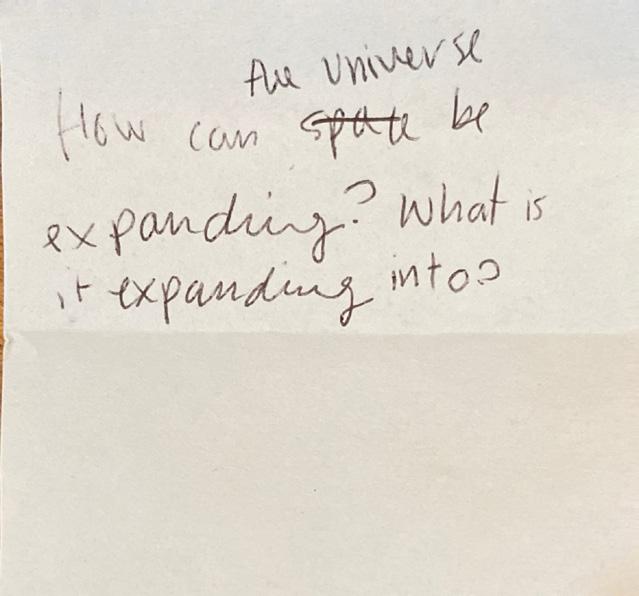 the universe
How can space be
expanding? What is
it expanding into?